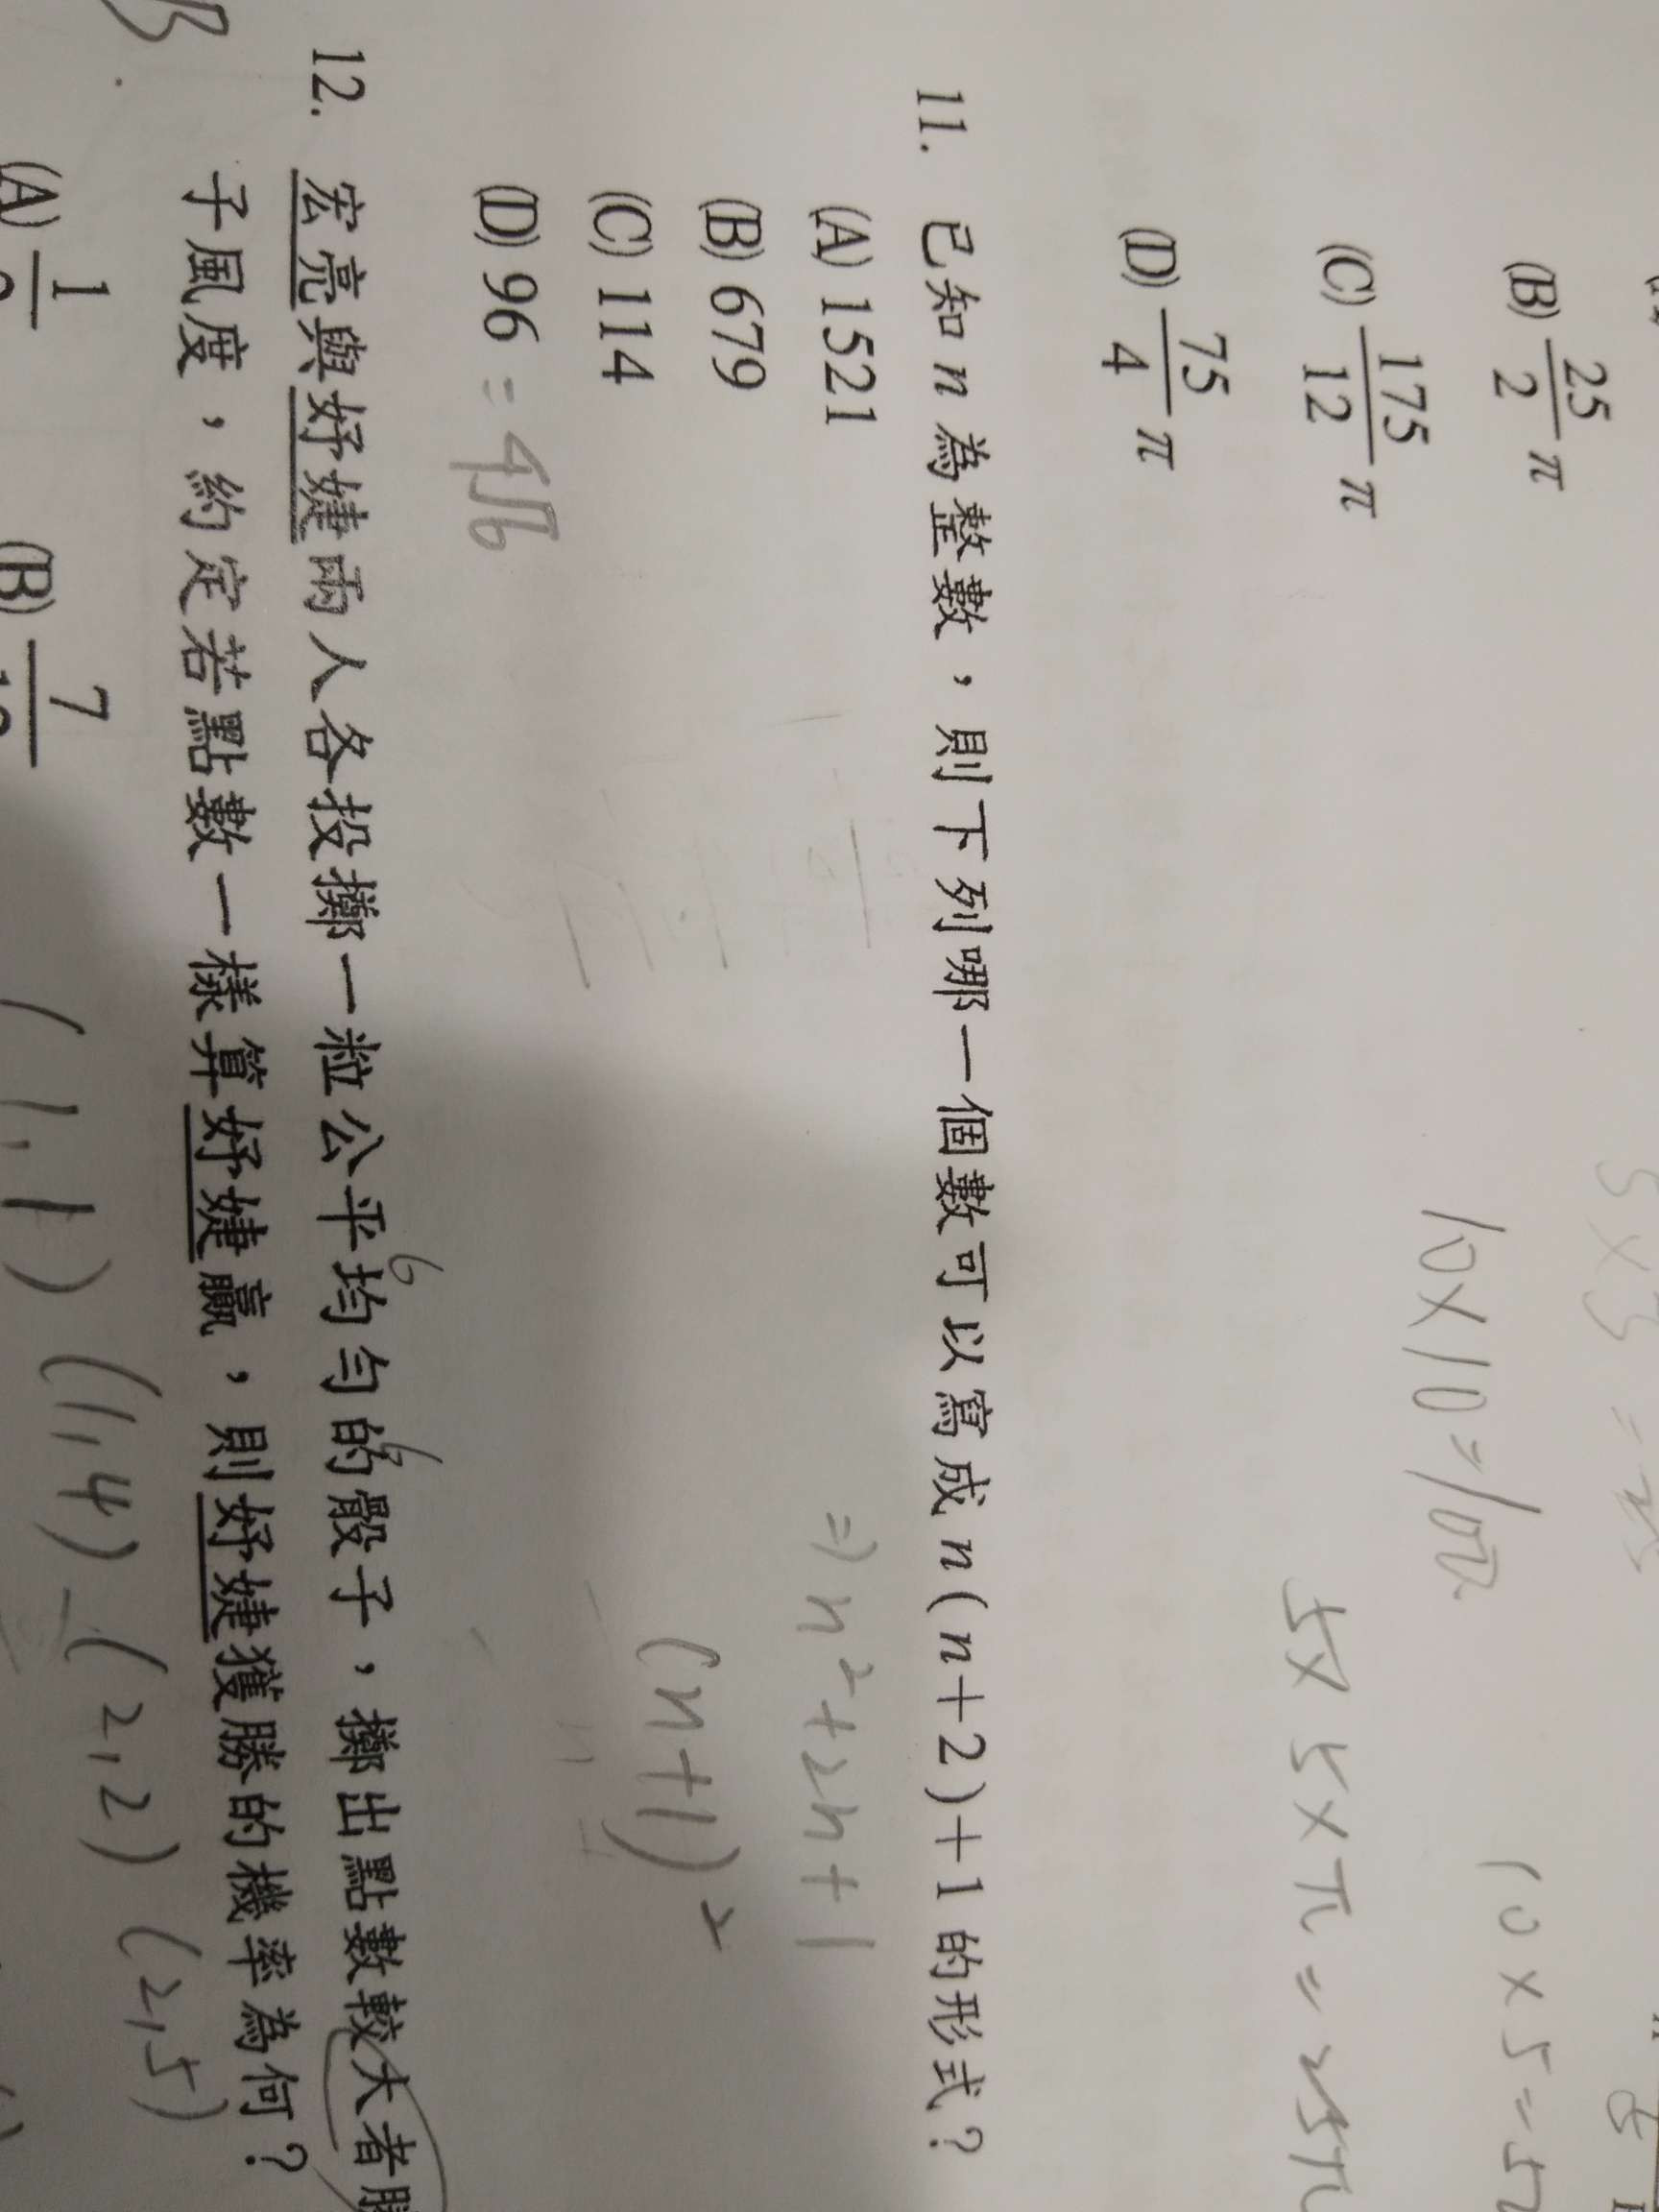 (B) 25/2 π
(C) 175/12 π
(D) 75/4 π
10×10=100
10×5=5
5×5×π=25π
11. 已知 n 為整數，則下列哪一個數可以寫成 n(n+2)+1 的形式？
(A) 1521
(B) 679
(C) 114
(D) 96 = 4√6
⇒ n²+2n+1
(n+1)²
12. 宏亮與妤婕兩人各投擲一粒公平均勻的骰子，擲出點數較大者勝
6 6
子風度，約定若點數一樣算妤婕贏，則妤婕獲勝的機率為何？
B
(A) 1
(B) 7
(1,1) (1,4) (2,2) (2,5)